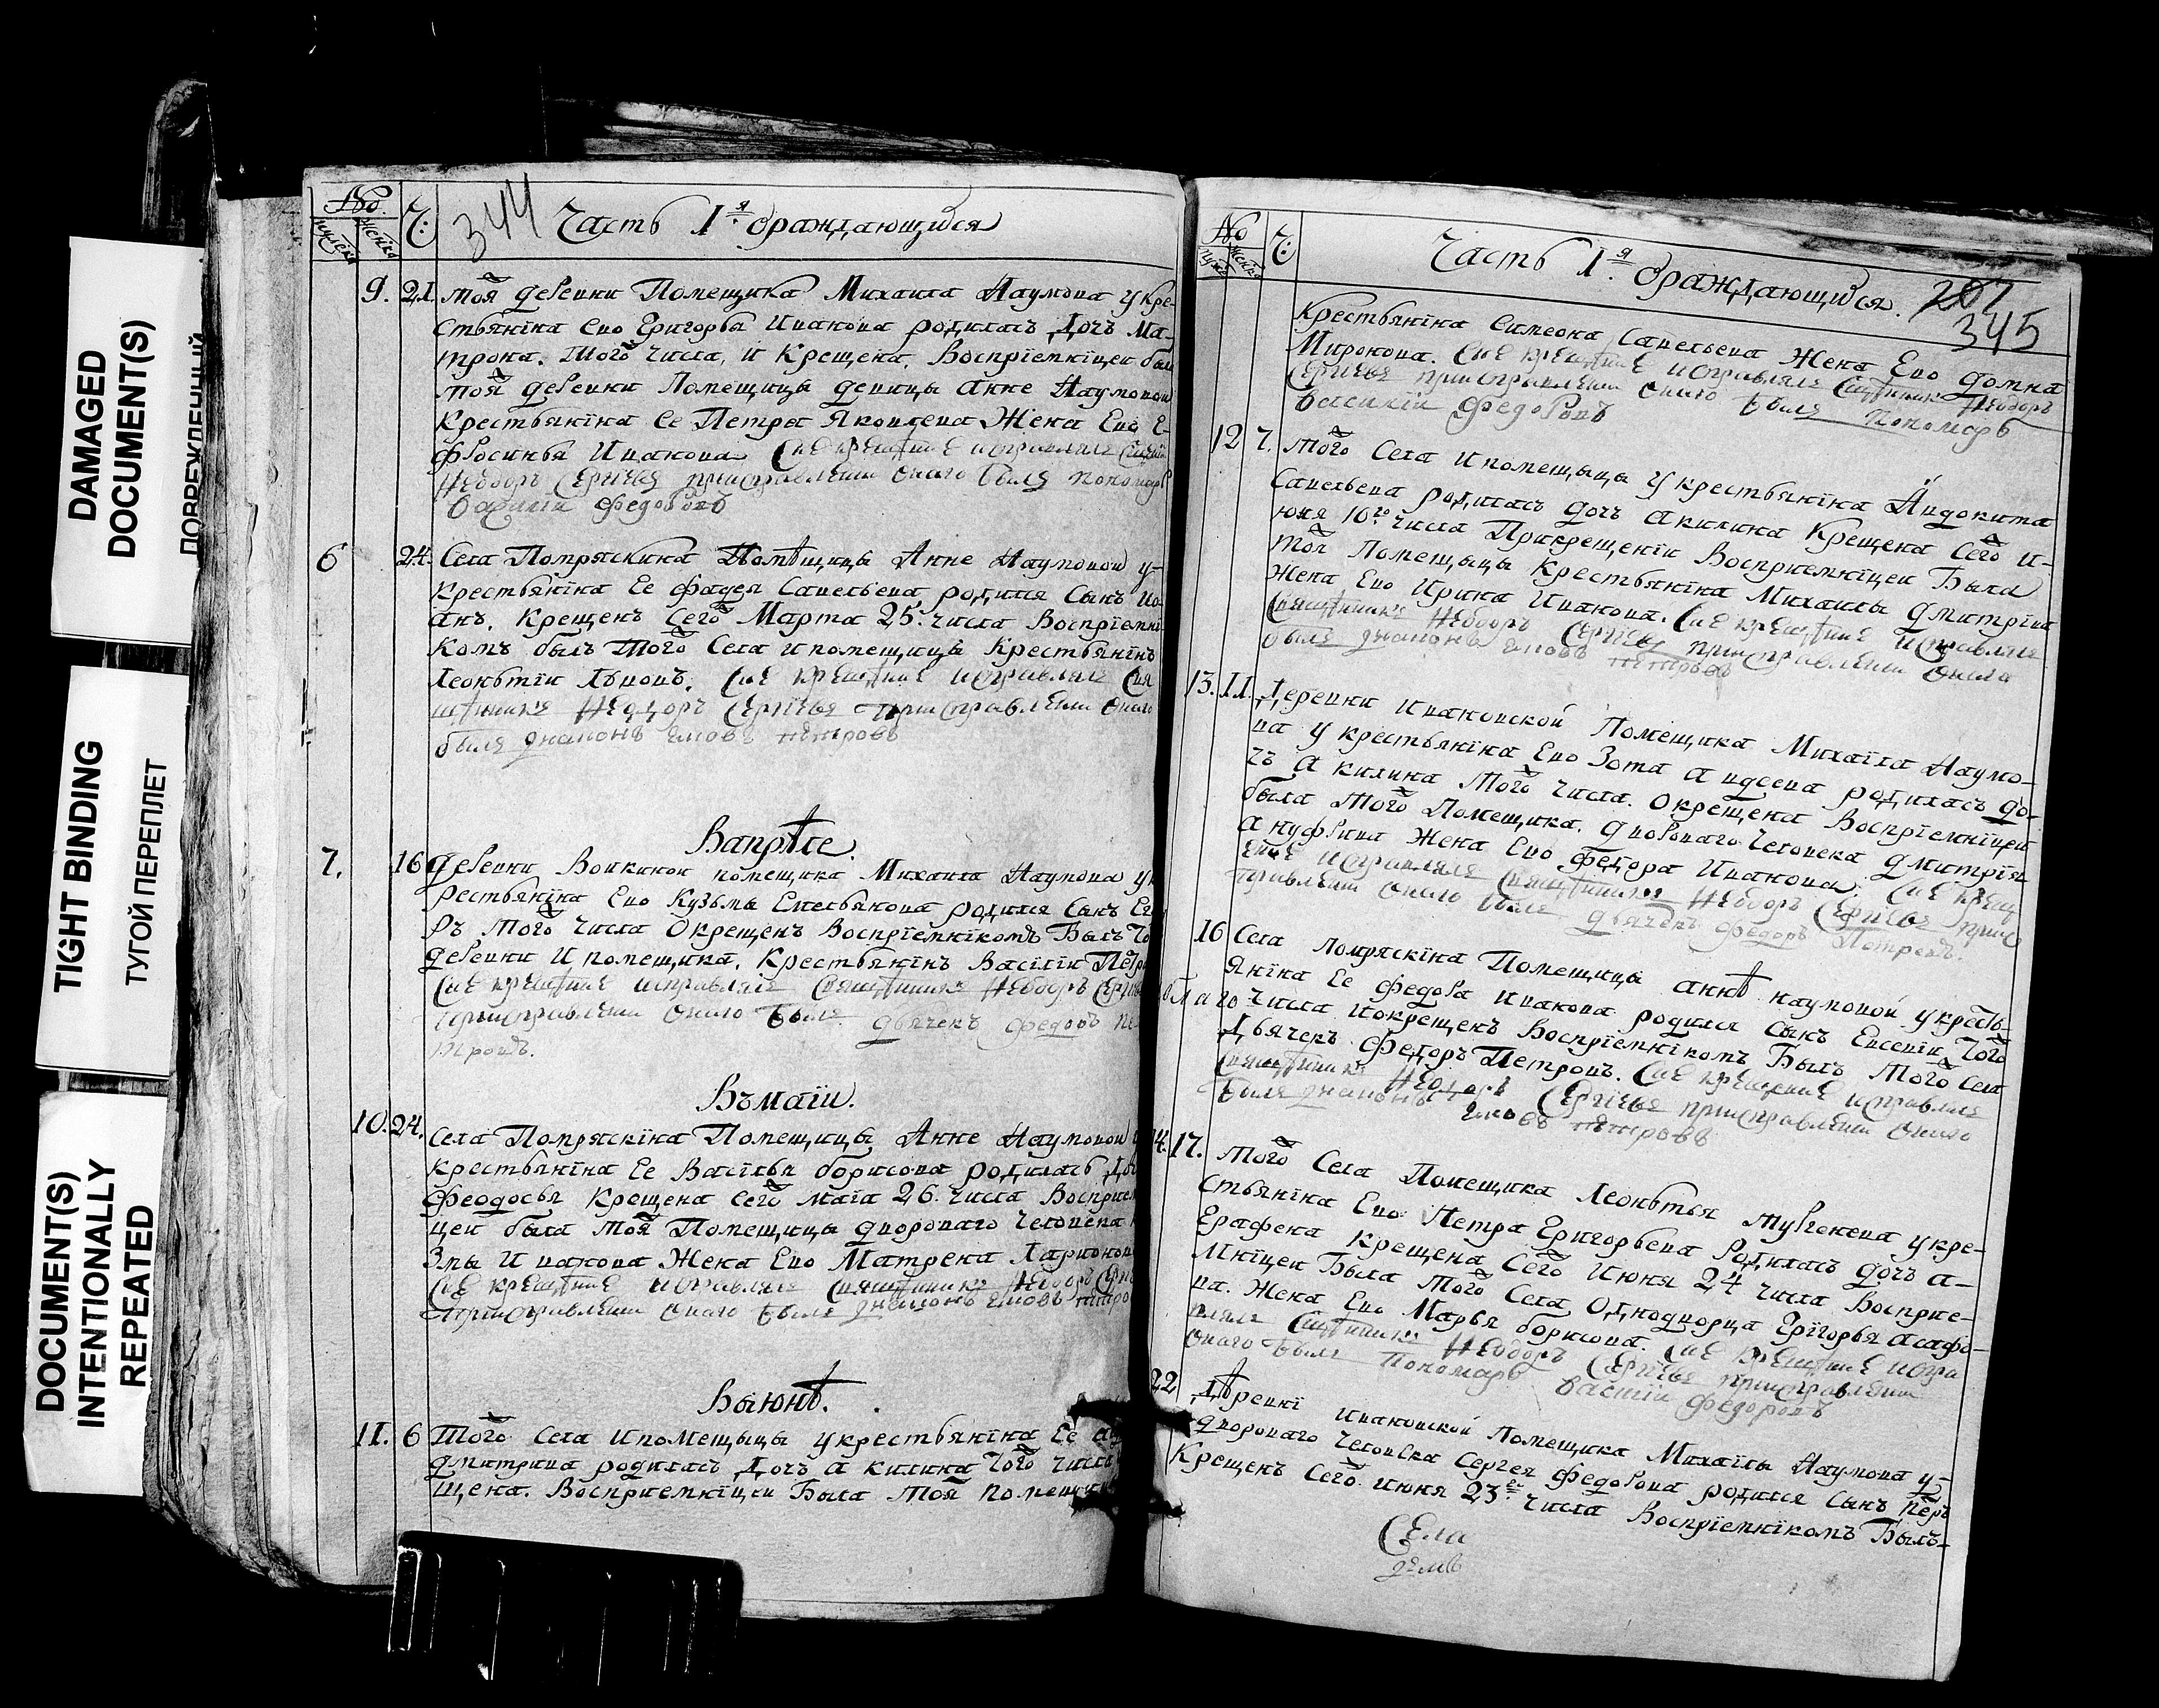 DAMAGED
DOCUMENT(S)
ПОВРЕЖДЕННЫЙ
TIGHT BINDING
ТУГОЙ ПЕРЕПЛЕТ
DOCUMENT(S)
INTENTIONALLY
REPEATED
№ Ч:
344 Часть 1я ораждающихся
9. 21. тоя деревни Помещика Михаила Наумова у кре-
стьянїна ево Григорья Иванова родилась Дочь Ма-
трона. того числа, и Крещена, Воспрїемнїцеи был
тоя деревни Помещицы девицы Анне Наумовои
Крестьянїна Ее Петра Яковлева Жена Ево Е-
фросинья Иванова Сие крещенїе исправлялъ
Ѳеодоръ Сергїевъ приисправленїи онаго былъ пономарь
Василїи Федоровъ
6 24. Села Помряскина Помѣщицы Анне Наумовои у-
крестьянїна Ее Фадея Савельева родился Сынъ Ио-
анъ. Крещенъ сего Марта 25. числа Воспрїемнї-
комъ былъ Того Села и помещицы Крестьянїнъ
Леонътїи Лъвовъ. Сие крещенїе исправлялъ Свя
щенникъ Ѳеодоръ Сергїевъ приисправленїи онаго
былъ диаконъ Иаковъ петровъ
Вапрѣле.
7. 16 деревни Воикинои помещика Михаила Наумова у к
рестьянїна Ево Кузьмы Емельянова родился Сынъ Его
ръ Того числа Окрещенъ Воспрїемнїкомъ Былъ То
деревни и помещика. Крестьянїнъ Василїи Петро
Сие крещенїе исправлялъ Священникъ Ѳеодоръ Сергїевъ
приисправленїи онаго былъ дьячекъ федоръ пе
тровъ.
Въмаїи.
10. 24. Села Помряскїна Помещицы Анне Наумовои у
крестьянїна Ее Васїлья борисова родилась До
Феодосья Крещена сего маїа 26. числа Восприем
цеи была тоя Помещицы двороваго человека К
змы Иванова Жена Ево Матрена Ларионов
Сие крещенїе исправлялъ Священникъ Ѳеодоръ
приисправленїи онаго былъ диаконъ Иаковъ петро
Въиюнѣ.
11. 6 Того села и помещыцы у крестьянїна Ее
дмитриева родилась Дочь Акилина того числа
щена. Воспрїемнїцеи Была тоя помещицы
№ Ч:
Часть 1я ораждающихся. 207
345
Крестьянїна Симеона Савельева Жена Ево домна
Миронова. Сие крещенїе исправлялъ Священникъ Ѳеодоръ
Сергїевъ приисправленїи онаго былъ Пономарь
Василїи Федоровъ
12 7. Того Села и помещыцы у крестьянїна Андокима
Савельева родилась дочь Акилина Крещена Сего и-
юня 10го числа Прикрещенїи Воспрїемнїцеи Была
той Помещыцы Крестьянїна Михаилы дмитриева
Жена Ево Ирина Иванова. Сие крещенїе исправлялъ
Священникъ Ѳеодоръ Сергїевъ приисправленїи онаго
былъ диаконъ Иаковъ петровъ
13. 11. Деревни Ивановской Помещика Михаїла Наумо-
ва у крестьянїна Ево Зота Авдеева родилась до-
чь Акилина Того числа. Окрещена Воспрїемнїцеи
была Того Помещика. двороваго человека дмитрїя
Ануфрива Жена Ево Федора Иванова. Сие крещ
енїе исправлялъ Священникъ Ѳеодоръ Сергїевъ приис
правленїи онаго былъ дьячекъ федоръ Петровъ.
16 Села Помряскїна Помещицы аннѣ наумовой у кресть-
янїна Ее Федора Иванова родился сынъ Евсевїи Того
числа иокрещенъ Воспрїемнїкомъ Былъ Того Села
Дьячекъ Федоръ Петровъ. Сие крещенїе исправлялъ
Священникъ Ѳеодоръ Сергїевъ приисправленїи онаго
былъ диаконъ Иаковъ петровъ
14. 17. Того Села Помещика Леонътья Тургенева у кре-
стьянїна Ево Петра Григорьева Родилась дочь А-
графена крещена Сего Июня 24 числа Восприе-
мнїцеи Была Того Села Однодворца Григорья асафо-
ва. Жена Ево Марья борисова. Сие крещенїе испра
влялъ Священникъ Ѳеодоръ Сергїевъ приисправленїи
онаго былъ Пономарь Василїи Федоровъ
22 Дѣревнї Ивановской Помещика Михаїлы Наумова у-
двороваго человека Сергея Федорова родился Сынъ Петръ
Крещенъ Сего июня 23го числа Воспрїемнїкомъ Былъ-
Села